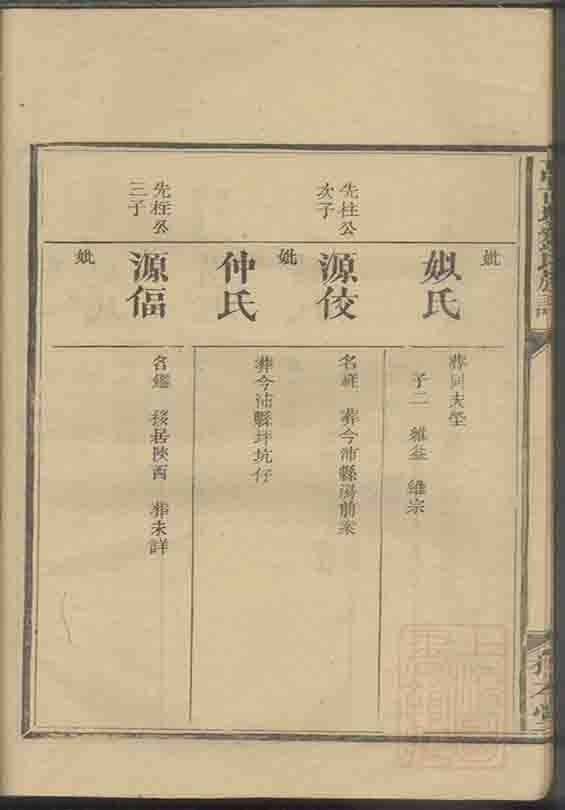 妣
姒氏
葬同夫塋
子二 維益 維宗
先柱公
次子
源佼
名祥 葬今沛縣湯前案
妣
仲氏
葬今沛縣坪坑仔
先柱公
三子
源偪
名鑑 移居陝西 葬未詳
妣